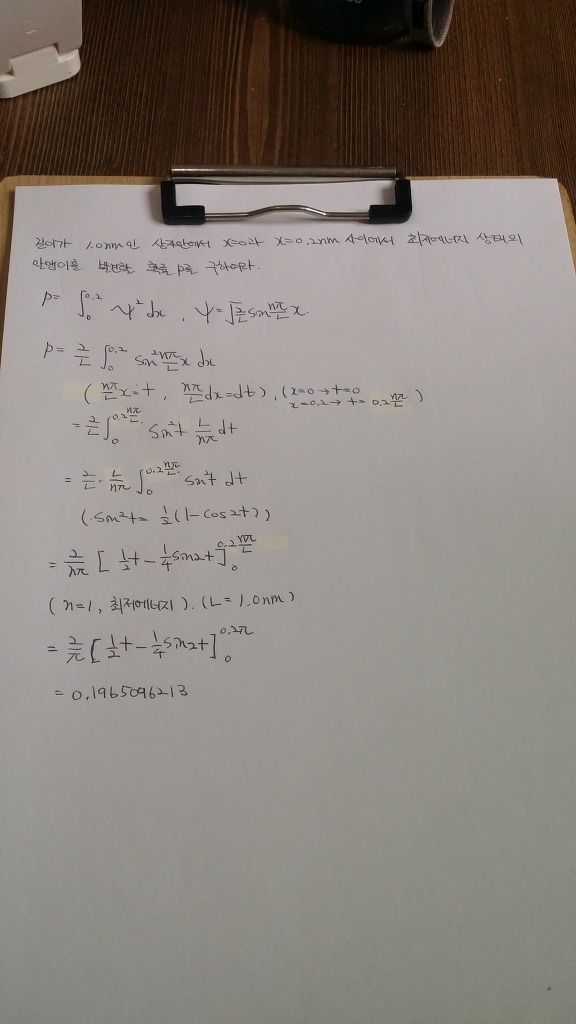 길이가 1.0nm인 상자안에서 x=0과 x=0.2nm 사이에서 최저에너지 상태의
알맹이를 발견할 확률 P를 구하여라.
P= ∫₀^0.2 ψ² dx , ψ=√(2/L) sin(nπ/L)x.
P= 2/L ∫₀^0.2 sin²(nπ/L)x dx
( nπ/L x=t , nπ/L dx=dt ), ( x=0 → t=0
x=0.2 → t= 0.2 nπ/L )
= 2/L ∫₀^(0.2 nπ/L) sin²t L/nπ dt
= 2/L · L/nπ ∫₀^(0.2 nπ/L) sin²t dt
( sin²t = 1/2(1-cos2t) )
= 2/nπ [ 1/2 t - 1/4 sin2t ]₀^(0.2 nπ/L)
( n=1, 최저에너지 ). ( L=1.0nm )
= 2/π [ 1/2 t - 1/4 sin2t ]₀^0.2π
= 0.1965096213